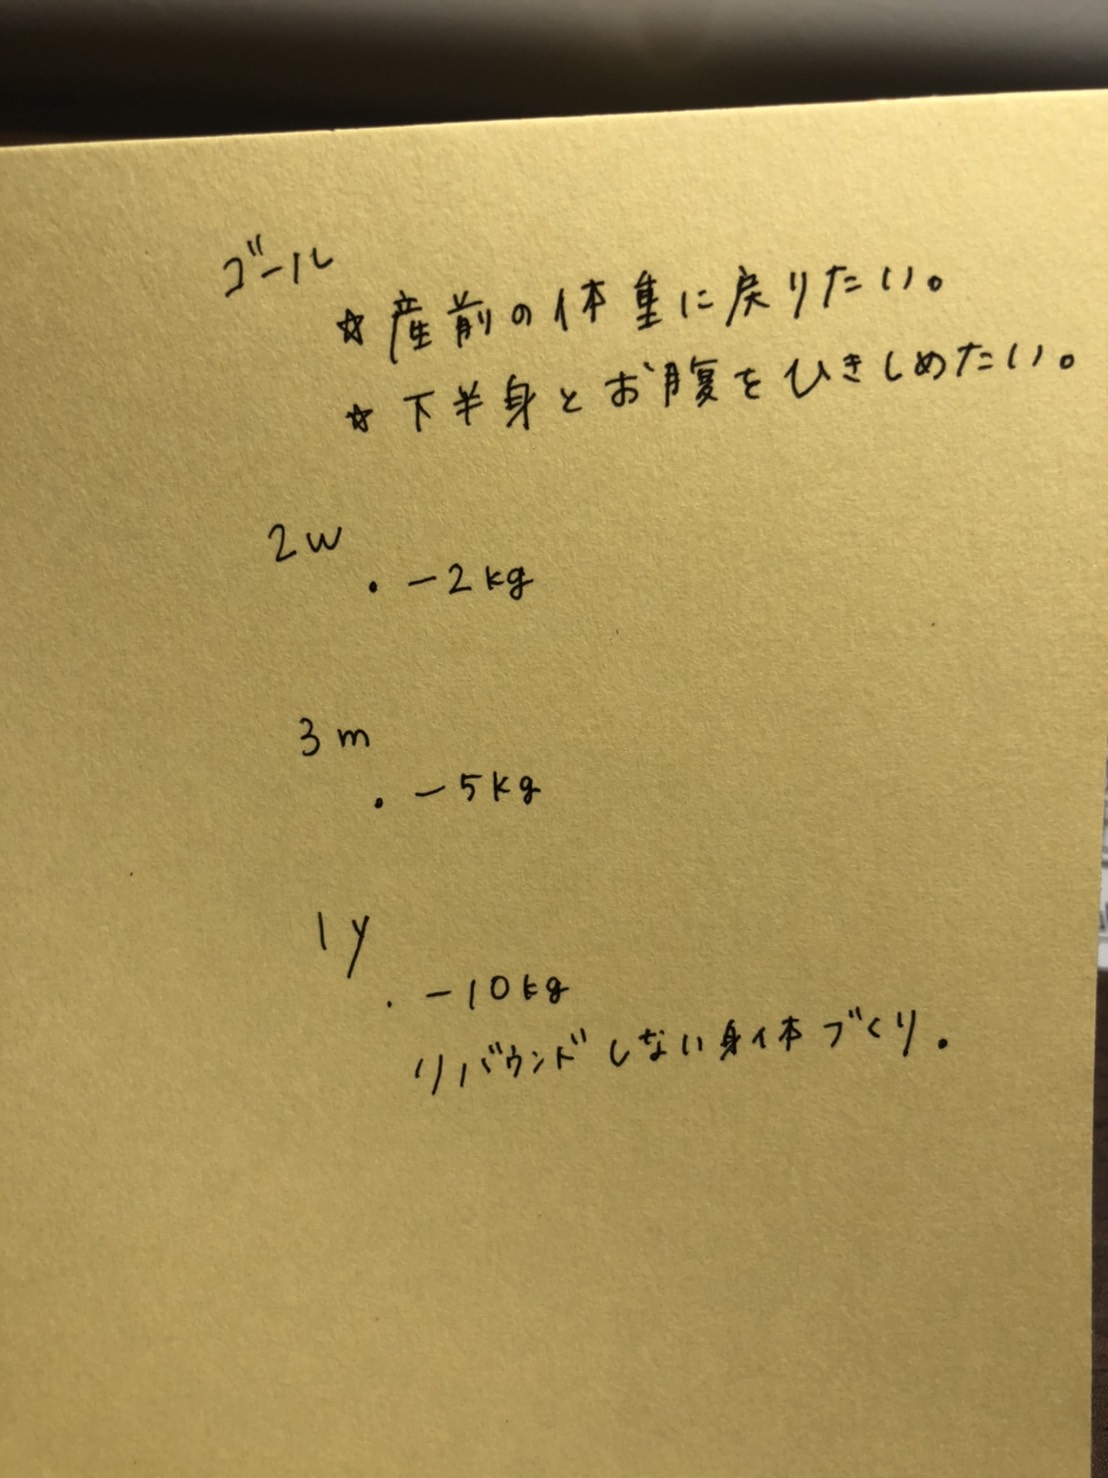 ゴール
☆ 産前の体重に戻りたい。
☆ 下半身とお腹をひきしめたい。
2w
・ －2kg
3m
・ －5kg
1y
・ －10kg
リバウンドしない身体づくり.